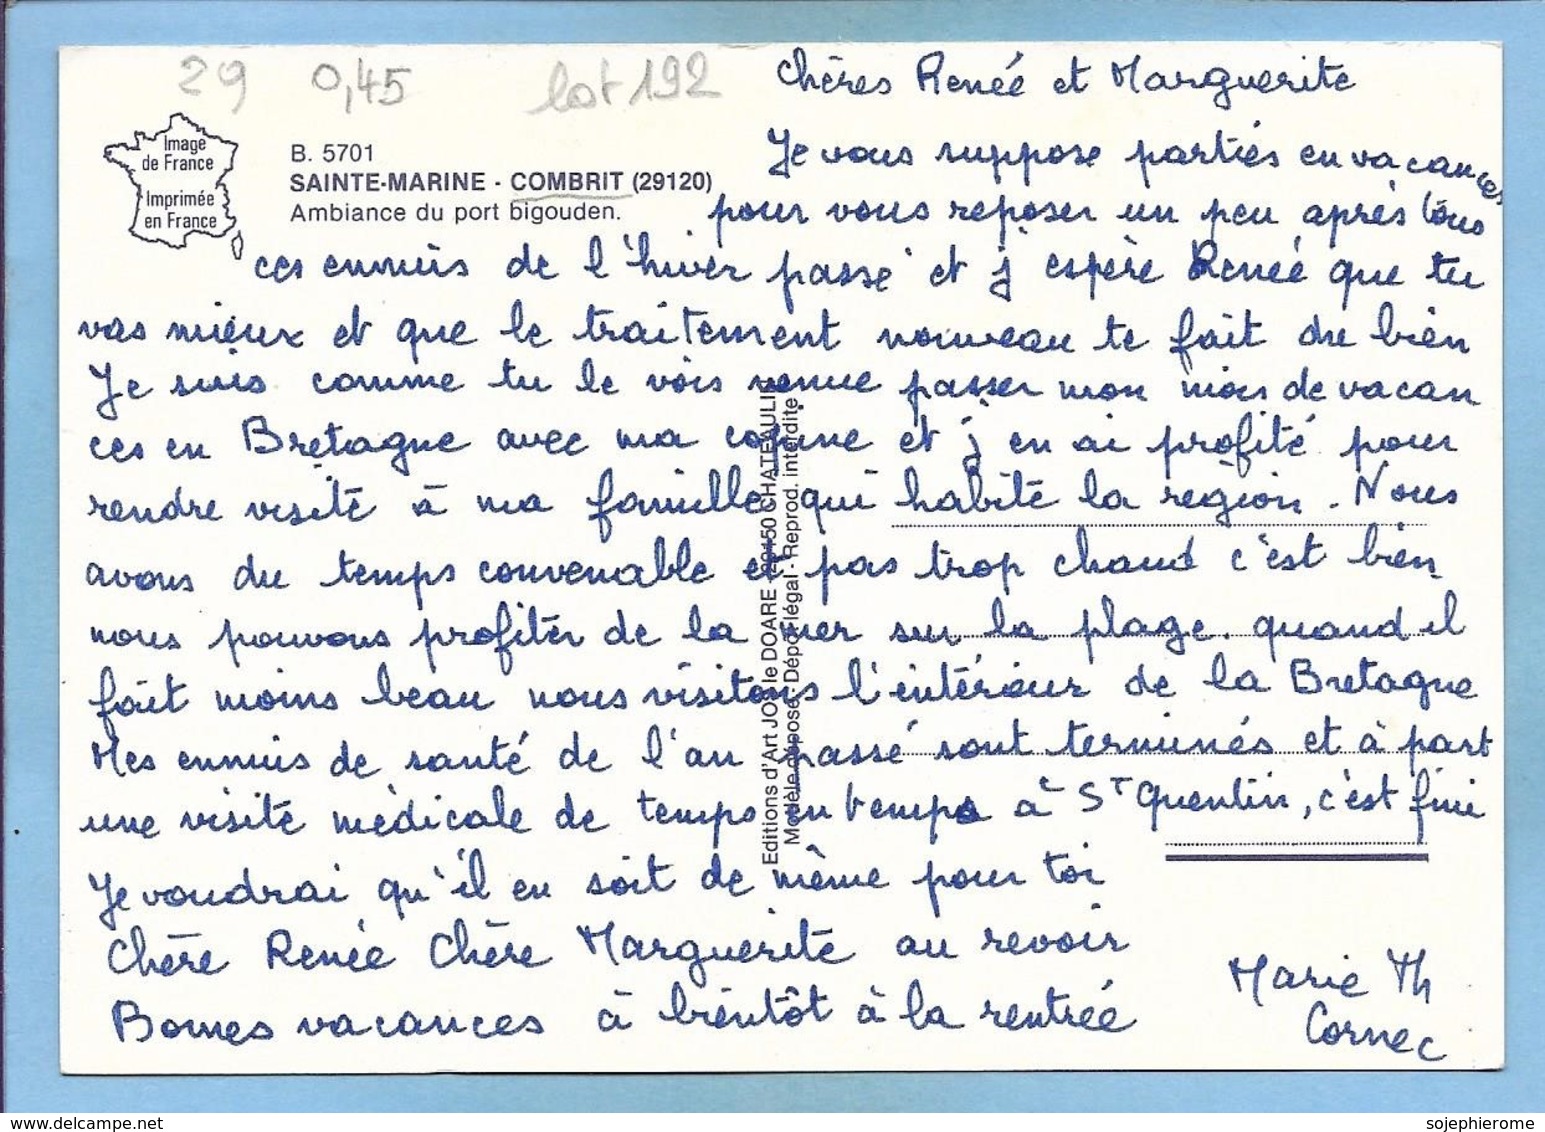 29 0,45 lot 192
Image
de France
Imprimée
en France
B. 5701
SAINTE-MARINE - COMBRIT (29120)
Ambiance du port bigouden.
Chères Renée et Marguerite
Je vous suppose parties en vacances
pour vous reposer un peu après tous
ces ennuis de l'hiver passé et j'espère Renée que tu
vas mieux et que le traitement nouveau te fait du bien
Je suis comme tu le vois venue passer mon mois de vacan
ces en Bretagne avec ma copine et j'en ai profité pour
rendre visite à ma famille qui habite la région. Nous
avons du temps convenable et pas trop chaud c'est bien
nous pouvons profiter de la mer sur la plage. quand il
fait moins beau nous visitons l'intérieur de la Bretagne
Mes ennuis de santé de l'an passé sont terminés et à part
une visite médicale de temps en temps à St Quentin, c'est fini
Je voudrai qu'il en soit de même pour toi
Chère Renée Chère Marguerite au revoir
Bonnes vacances à bientôt à la rentrée
Marie Th
Cornec
Editions d'Art JOS le DOARE - 29150 CHATEAULIN
Modèle déposé - Dépôt légal - Reprod. interdite
delcampe.net
sojephierome